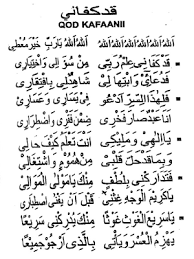 قدكفاني
QOD KAFAANII
اَللهُ اَللهُ اَللهُ اَللهُ اَللهُ اَللهُ يَارَبِّ خَيْرَ مُعْطِي
قَدْ كَفَانِي عِلْمُ رَبِّي مِنْ سُؤَالِي وَاخْتِيَارِي
فَدُعَائِي وَابْتِهَالِي شَاهِدٌ لِي بِافْتِقَارِي
فَلِهٰذَا السِّرِّ اَدْعُو فِي يَسَارِي وَعَسَارِي
اَنَا عَبْدٌ صَارَ فَخْرِي ضِمْنَ فَقْرِي وَاضْطِرَارِي
يَا اِلٰهِي وَمَلِيْكِي اَنْتَ تَعْلَمُ كَيْفَ حَالِي
وَبِمَا قَدْ حَلَّ قَلْبِي مِنْ هُمُوْمٍ وَاشْتِغَالِي
فَتَدَارَكْنِي بِلُطْفٍ مِنْكَ يَا مَوْلَى الْمَوَالِي
يَا كَرِيْمَ الْوَجْهِ غِثْنِي قَبْلَ اَنْ يَفْنَى اصْطِبَارِي
يَا سَرِيْعَ الْغَوْثِ غَوْثًا مِنْكَ يُدْرِكُنِي سَرِيْعًا
يَهْزِمُ الْعُسْرَ وَيَأْتِي بِالَّذِي اَرْجُو جَمِيْعًا